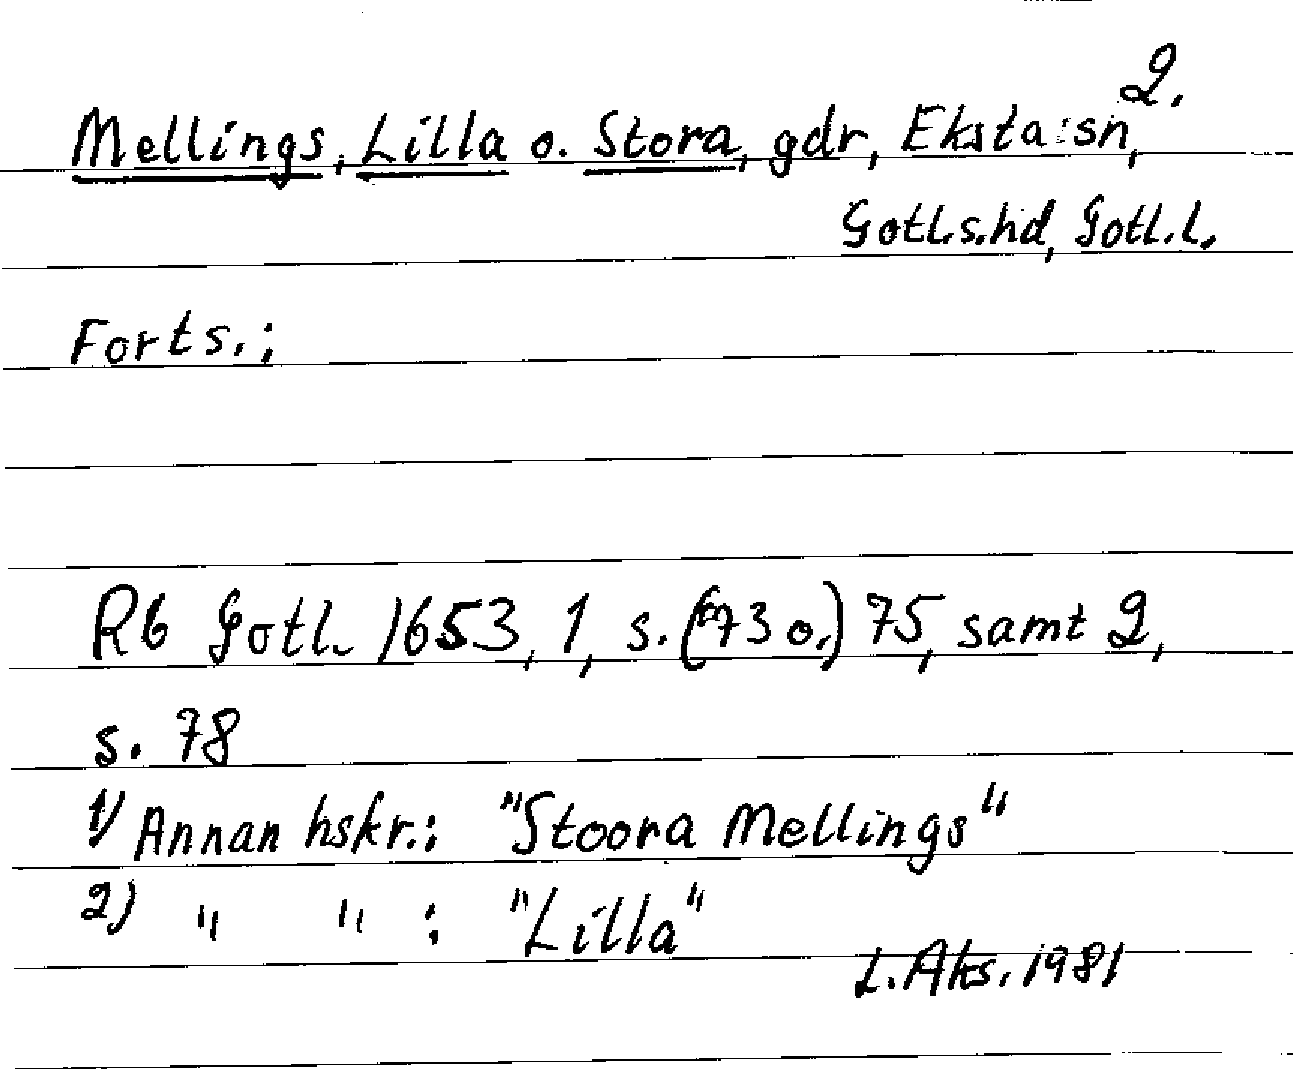 2.
Mellings, Lilla o. Stora, gdr, Eksta:sn,
Gotl.s.hd, Gotl.l.
Forts.;
Rb Gotl. 1653, 1, s. (73 o.) 75, samt 2,
s. 78
1) Annan hskr.: "Stoora Mellings"
2) " " : "Lilla"
L. Aks. 1981